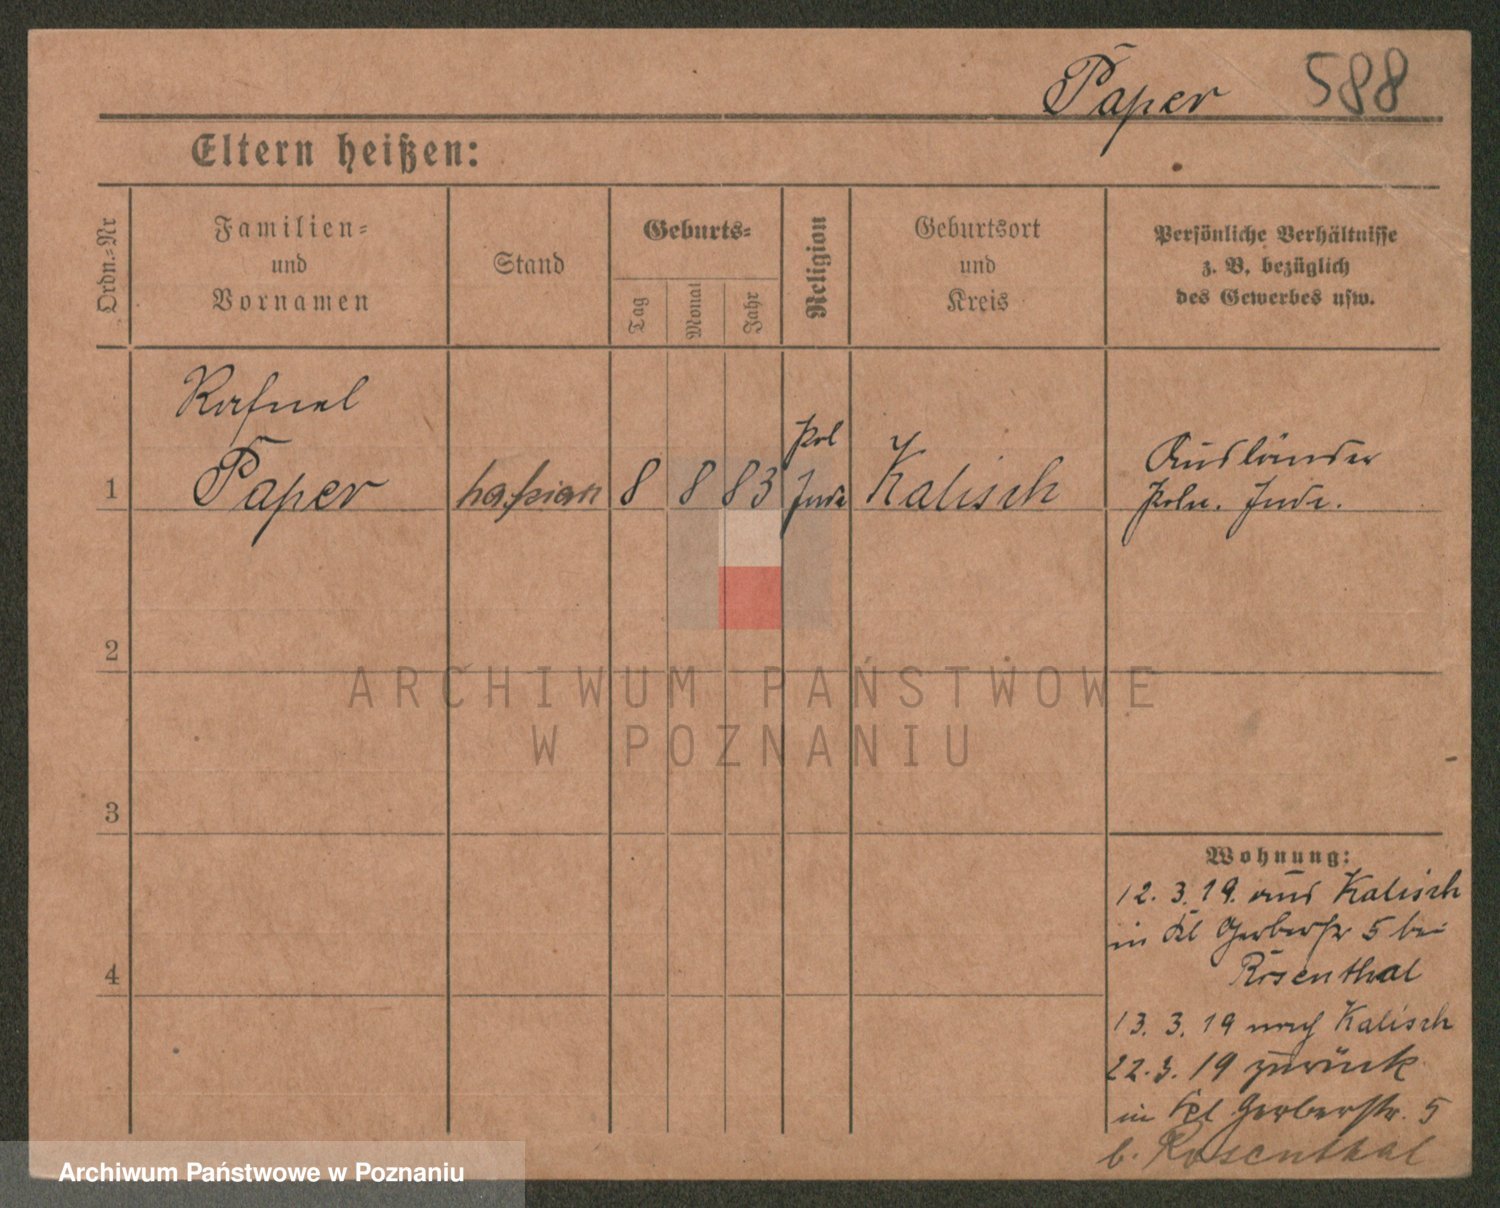 Paper 588
Eltern heißen:
Ordn.=Nr
Familien=
und
Vornamen
Stand
Geburts=
Tag
Monat
Jahr
Religion
Geburtsort
und
Kreis
Persönliche Verhältnisse
z. B. bezüglich
des Gewerbes usw.
1
Rafael
Paper
8 8 83
pol
Jude
Kalisch
Ausländer
poln. Jude.
2
3
4
Wohnung:
12. 3. 19. aus Kalisch
in Kl Gerberstr 5 bei
Rosenthal
13. 3. 19 nach Kalisch
22. 3. 19 zurück
in Kl Gerberstr. 5
b. Rosenthal
ARCHIWUM PAŃSTWOWE
W POZNANIU
Archiwum Państwowe w Poznaniu